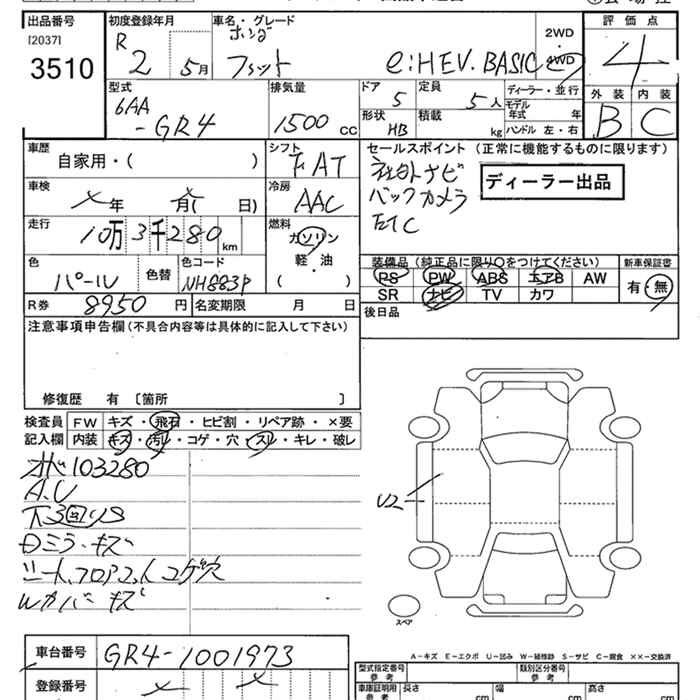 出品番号
[2037]
3510
初度登録年月
R 2 年 5月
車名・グレード
ホンダ
フィット e:HEV. BASIC
2WD
4WD
評価点
4
外装 内装
B C
型式
6AA
-GR4
排気量
1500 cc
ドア
5
定員
5人
形状
HB
積載
kg
ディーラー・並行
モデル年式 年
ハンドル 左・右
車歴
自家用・( )
シフト
FAT
セールスポイント (正常に機能するものに限ります)
社外ナビ
バックカメラ
ETC
ディーラー出品
車検
年 月( 日)
冷房
AAC
走行
10万3千280 km
燃料
ガソリン
軽・油
( )
色
パール
色替
色コード
NH883P
装備品 (純正品に限り○をつけてください)
PS PW ABS エアB AW
SR ナビ TV カワ
新車保証書
有・無
R券 8950 円
名変期限 月 日
後日品
注意事項申告欄(不具合内容等は具体的に記入して下さい)
修復歴 有 〔箇所 〕
検査員記入欄
FW キズ・飛石・ヒビ割・リペア跡・×要
内装 キズ・汚レ・コゲ・穴・スレ・キレ・破レ
103280
A.U
下回りS
ミラーキズ
シート、フロア コゲ穴
カバーキズ
U2
スペア
車台番号 GR4-1001973
登録番号
A-キズ E-エクボ U-凹み W-補修跡 S-サビ C-腐食 ××-交換済
型式指定番号 参考
類別区分番号 参考
車庫証明用 参考
長さ cm
幅 cm
高さ cm